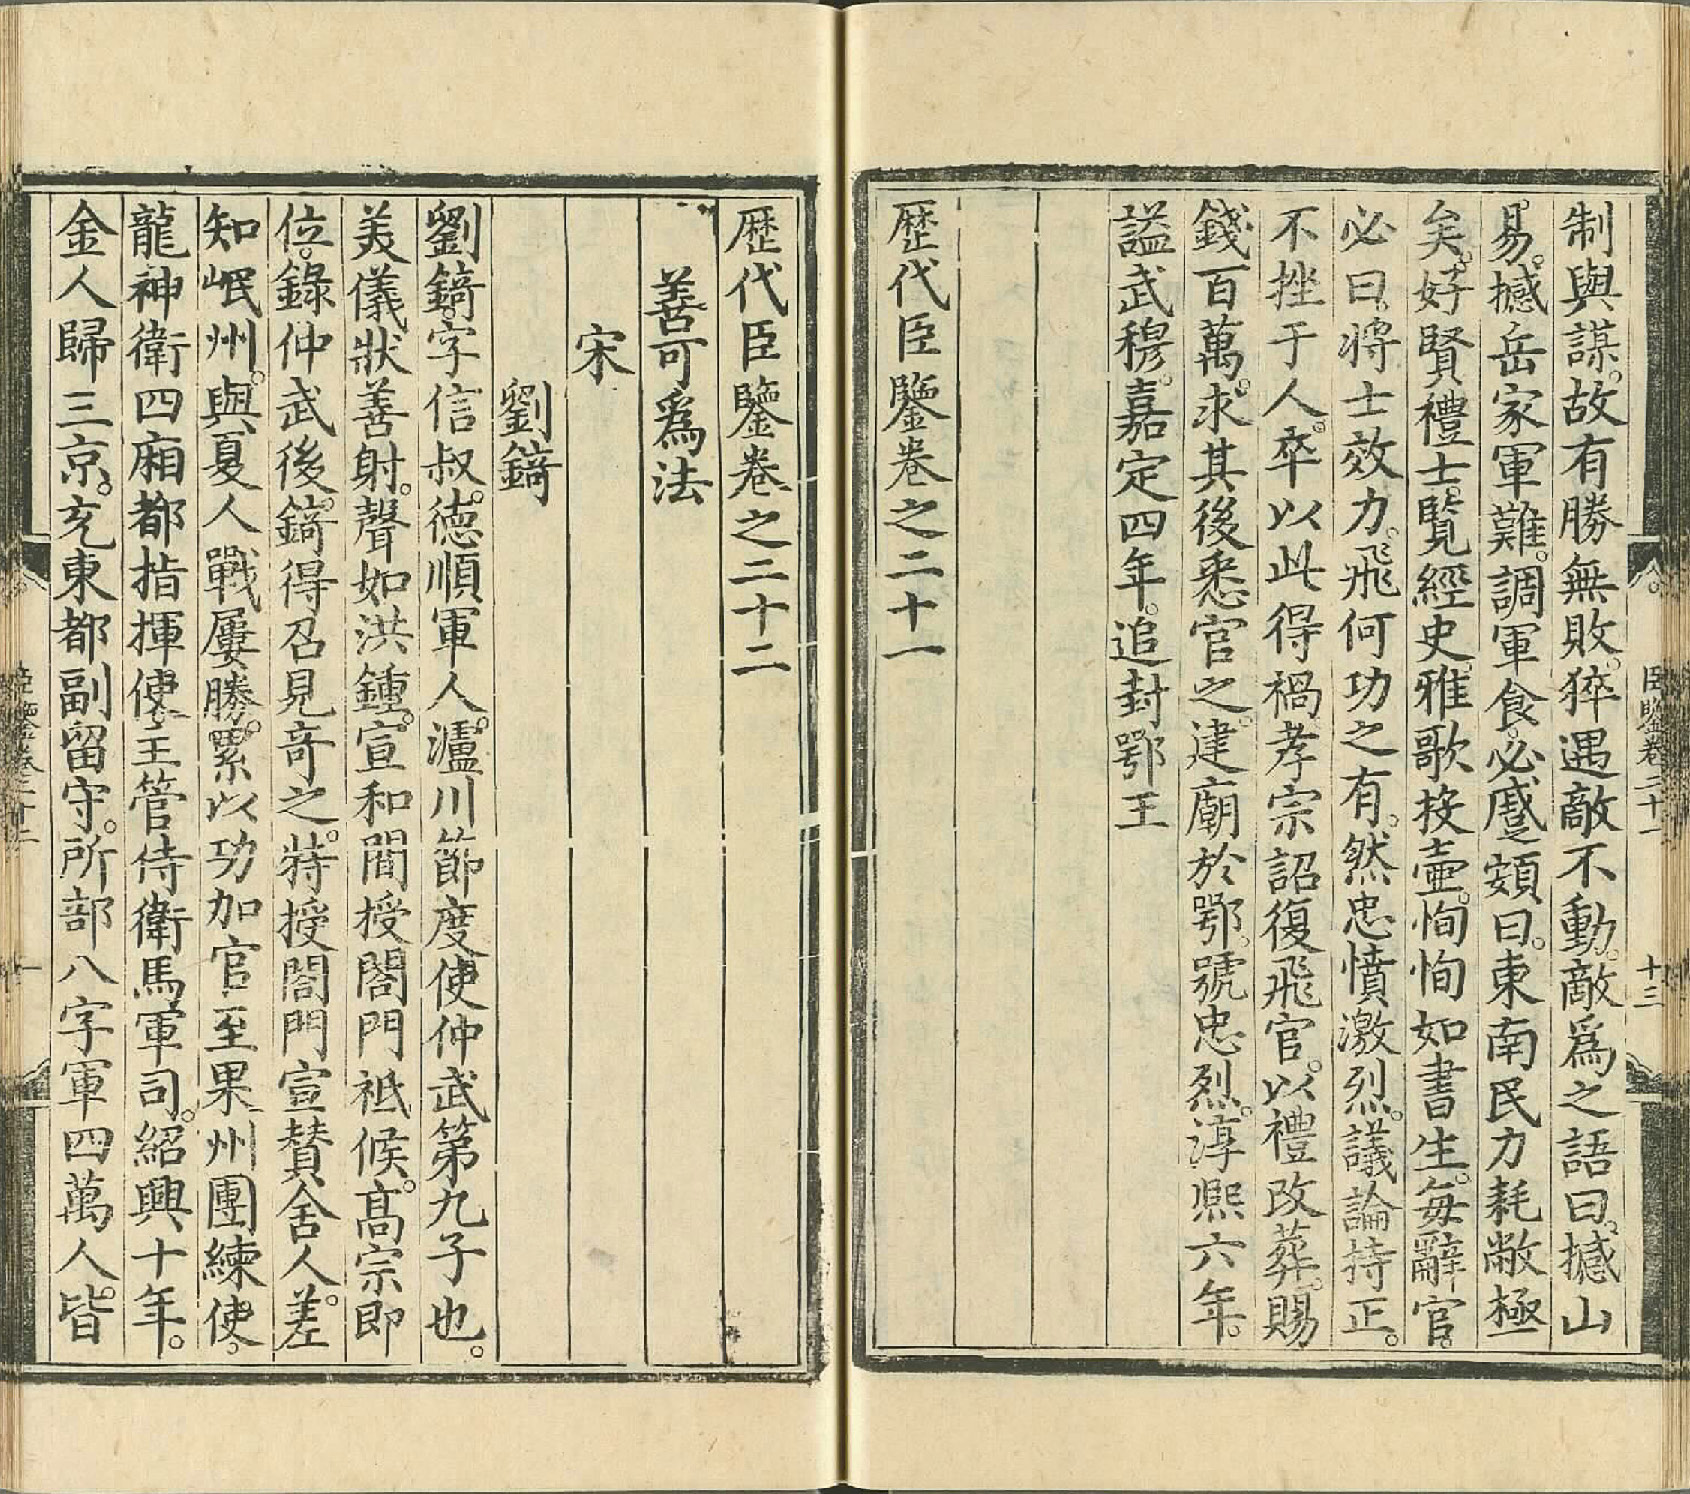 臣鑒卷二十一 十三
制與謀。故有勝無敗。猝遇敵不動。敵爲之語曰。撼山
易。撼岳家軍難。調軍食。必蹙頞曰。東南民力耗敝極
矣。好賢禮士。覽經史。雅歌投壺。恂恂如書生。每辭官。
必曰。將士效力。飛何功之有。然忠憤激烈。議論持正。
不挫于人。卒以此得禍。孝宗詔復飛官。以禮改葬。賜
錢百萬。求其後悉官之。建廟於鄂。號忠烈。淳熙六年。
謚武穆。嘉定四年。追封鄂王
歷代臣鑒卷之二十一
歷代臣鑒卷之二十二
善可爲法
宋
劉錡
劉錡。字信叔。德順軍人。瀘川節度使仲武第九子也。
美儀狀。善射。聲如洪鍾。宣和間授閤門祗候。高宗即
位。錄仲武後。錡得召見。奇之。特授閤門宣賛舍人。差
知岷州。與夏人戰屢勝。累以功加官至果州團練使。
龍神衛四廂都指揮使。主管侍衛馬軍司。紹興十年。
金人歸三京。充東都副留守。所部八字軍四萬人。皆
臣鑒卷二十二 一